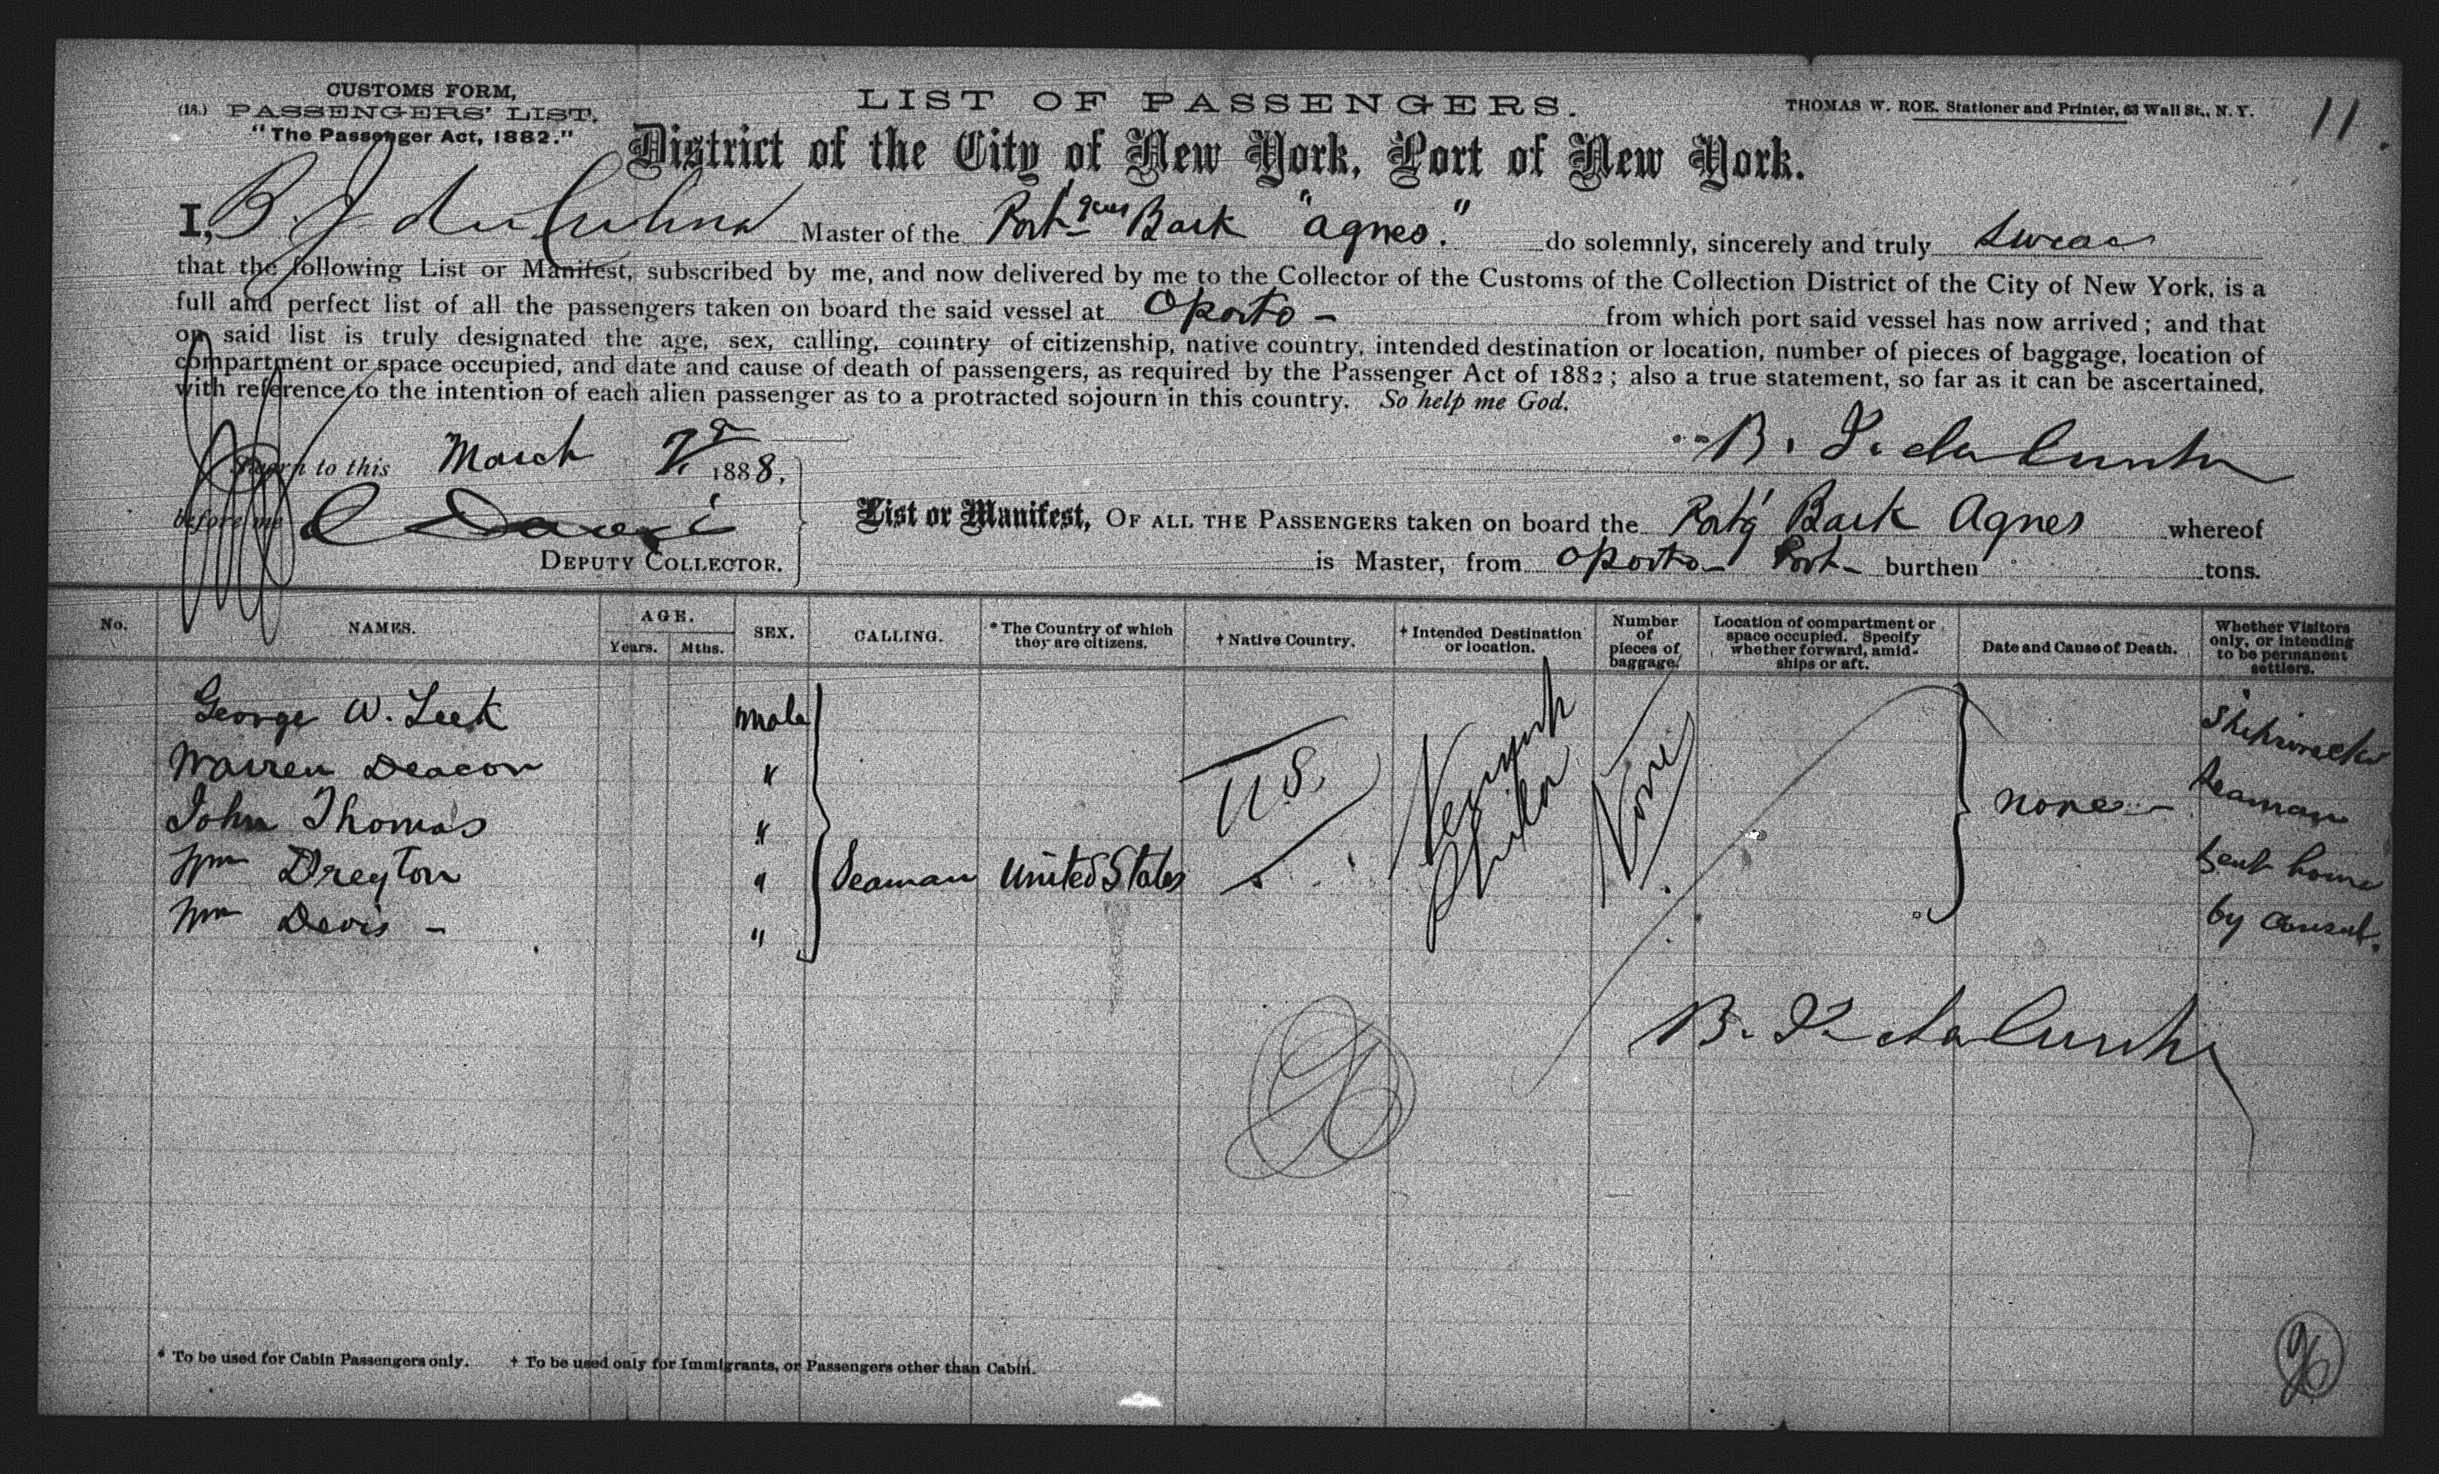 CUSTOMS FORM,
(18.) PASSENGERS' LIST.
"The Passenger Act, 1882."
LIST OF PASSENGERS.
THOMAS W. ROE, Stationer and Printer, 63 Wall St., N. Y.
11
District of the City of New York, Port of New York.
I, B. J. da Cunha Master of the Portgues Bark "Agnes." do solemnly, sincerely and truly swear
that the following List or Manifest, subscribed by me, and now delivered by me to the Collector of the Customs of the Collection District of the City of New York, is a
full and perfect list of all the passengers taken on board the said vessel at Oporto - from which port said vessel has now arrived; and that
on said list is truly designated the age, sex, calling, country of citizenship, native country, intended destination or location, number of pieces of baggage, location of
compartment or space occupied, and date and cause of death of passengers, as required by the Passenger Act of 1882; also a true statement, so far as it can be ascertained,
with reference to the intention of each alien passenger as to a protracted sojourn in this country. So help me God.
B. J. da Cunha
Sworn to this March 1888,
before me
DEPUTY COLLECTOR.
List or Manifest, OF ALL THE PASSENGERS taken on board the Portg Bark Agnes whereof
is Master, from Oporto - Port - burthen tons.
No.
NAMES.
AGE.
Years.
Mths.
SEX.
CALLING.
* The Country of which they are citizens.
† Native Country.
† Intended Destination or location.
Number of pieces of baggage.
Location of compartment or space occupied. Specify whether forward, amidships or aft.
Date and Cause of Death.
Whether Visitors only, or intending to be permanent settlers.
George W. Leek male
Warren Deacon "
John Thomas "
Wm Dreyton "
Wm Devis - "
Seaman
United States
U.S.
New York
Phila
None
none -
Shipwreck
Seaman
sent home
by Consul.
B. J. da Cunha
* To be used for Cabin Passengers only. † To be used only for Immigrants, or Passengers other than Cabin.